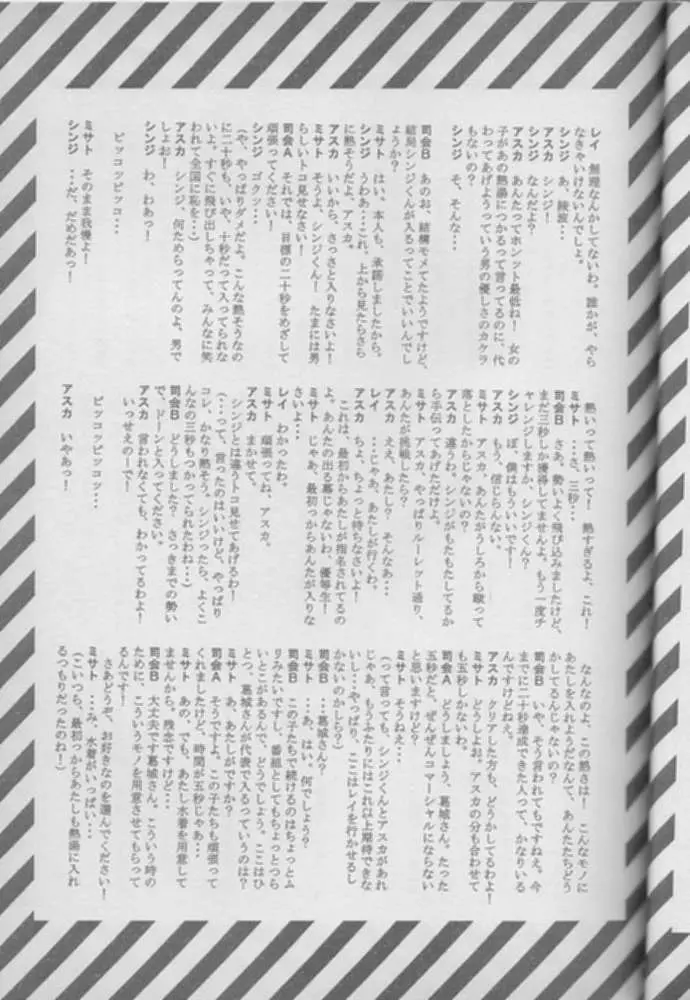 レイ 無理なんかしてないわ。誰かが、やら
なきゃいけないんでしょ。
シンジ あ、綾波…
アスカ シンジ!
シンジ なんだよ?
アスカ あんたってホンット最低ね! 女の
子があの熱湯につかるって言ってるのに、代
わってあげようっていう男の優しさのカケラ
もないの?
シンジ そ、そんな…
司会B あのお、結構モメてたようですけど、
結局シンジくんが入るってことでいいんでし
ょうか?
ミサト はい。本人も、承諾しましたから。
シンジ うわあ…これ、上から見たらさら
に熱そうだよ、アスカ。
アスカ いいから、さっさと入りなさいよ!
ミサト そうよ、シンジくん! たまには男
らしいトコ見せなさい!
司会A それでは、目標の二十秒をめざして
頑張ってください!
シンジ ゴクッ…
(や、やっぱりダメだよ。こんな熱そうなの
に二十秒も、いや、十秒だって入ってられな
いよ。すぐに飛び出しちゃって、みんなに笑
われて全国に恥を…)
アスカ シンジ、何ためらってんのよ、男で
しょお!
シンジ わ、わあっ!
ピッコッピッコ…
ミサト そのまま我慢よ!
シンジ …だ、だめだあっ!
熱いって熱いって! 熱すぎるよ、これ!
ミサト …さ、三秒…
司会B さあ、勢いよく飛び込みましたけど、
まだ三秒しか獲得してませんよ。もう一度チ
ャレンジしますか、シンジくん?
シンジ ぼ、僕はもういいです!
アスカ もう、信じらんない。
ミサト アスカ、あんたがうしろから蹴って
落としたからじゃないの?
アスカ 違うわ。シンジがもたもたしてるか
ら手伝ってあげただけよ。
ミサト アスカ、やっぱりルーレット通り、
あんたが挑戦したら?
アスカ ええ、あたし? そんなあ…
レイ …じゃあ、あたしが行くわ。
アスカ ちょ、ちょっと待ちなさいよ!
これは、最初からあたしが指名されてるの
よ。あんたの出る幕じゃないわ、優等生!
ミサト じゃあ、最初っからあんたが入りな
さいよ…
レイ わかったわ。
ミサト 頑張ってね、アスカ。
アスカ まかせて。
シンジとは違うトコ見せてあげるわ!
(…って、言ったのはいいけど、やっぱり
コレ、かなり熱そう。シンジったら、よくこ
んなの三秒もつかってられたわね…)
司会B どうしました? さっきまでの勢い
で、ドーンと入ってください。
アスカ 言われなくても、わかってるわよ!
いっせえのーで!
ピッコッピッコッ…
アスカ いやあっ!
なんなのよ、この熱さは! こんなモノに
あたしを入れようだなんて、あんたたちどう
かしてるんじゃないの?
司会B いや、そう言われてもですねえ。今
までに二十秒達成できた人って、かなりいる
んですけどねえ。
アスカ クリアした方も、どうかしてるわよ!
ミサト どうしよお。アスカの分も合わせて
も五秒しかないわ。
司会A どうしましょう、葛城さん。たった
五秒だと、ぜんぜんコマーシャルにならない
と思いますけど?
ミサト そうねえ…
(って言っても、シンジくんとアスカがあれ
じゃあ、もうふたりにはこれ以上期待できな
いし…やっぱり、ここはレイを行かせるし
かないのかしら?)
司会B …葛城さん?
ミサト …あ、はい。何でしょう?
司会B この子たちで続けるのはちょっとム
リみたいですし、番組としてもちょっとつら
いとこがあるんで、どうでしょう。ここはひ
とつ、葛城さんが代表で入るっていうのは?
ミサト あ、あたしがですか?
司会A そうですよ。この子たちも頑張って
くれましたけど、時間が五秒じゃあ…
ミサト あの、でも、あたし水着を用意して
ませんから。残念ですけど…
司会B 大丈夫です葛城さん。こういう時の
ために、こういうモノを用意させてもらって
るんです!
さあどうぞ、お好きなのを選んでください!
ミサト …み、水着がいっぱい…
(こいつら、最初っからあたしも熱湯に入れ
るつもりだったのね!)